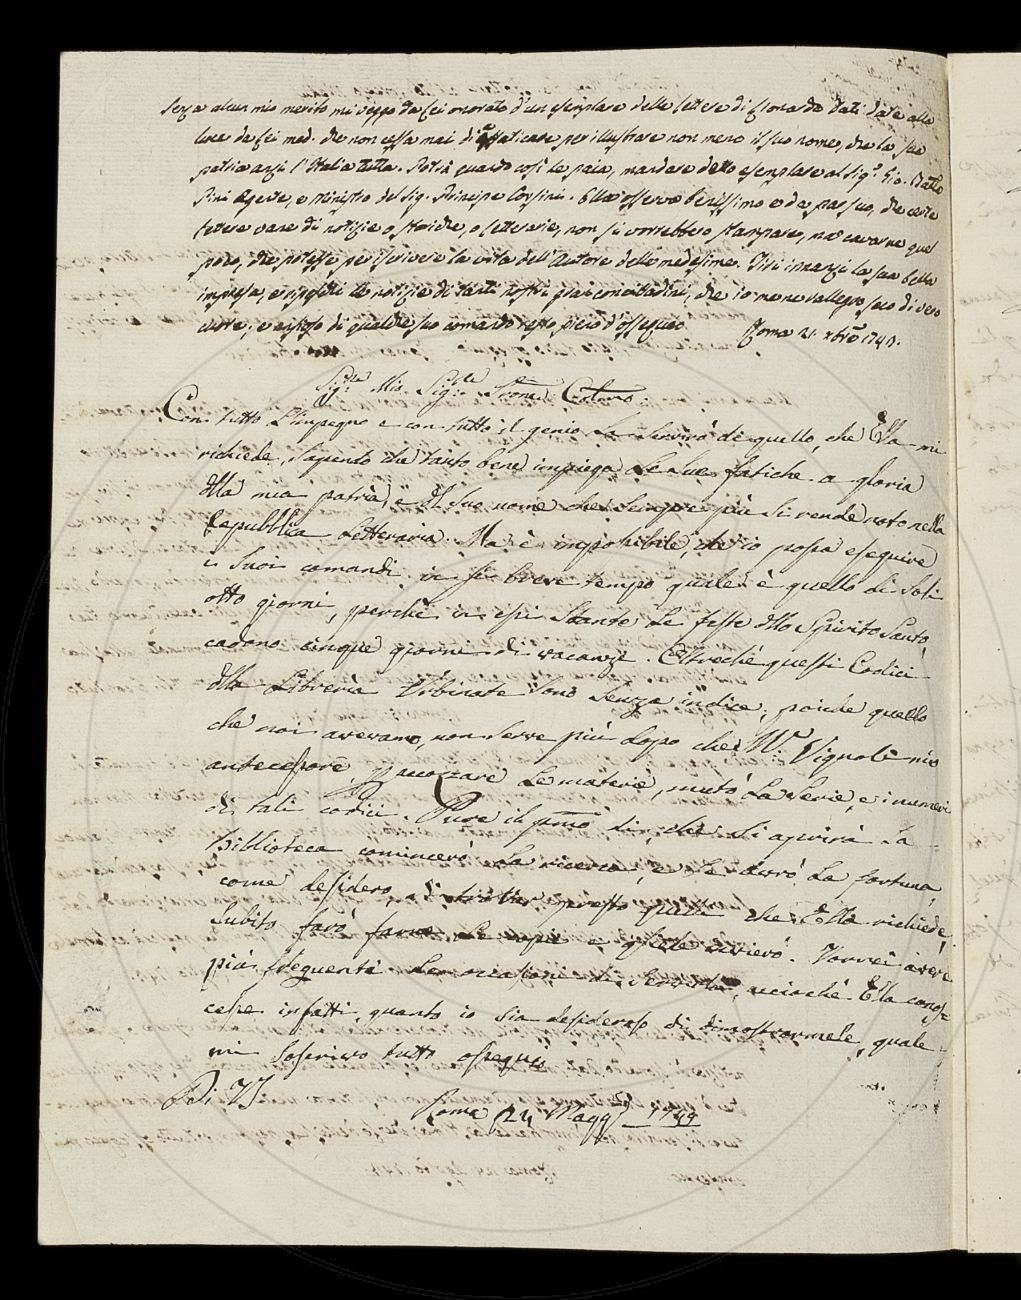 Senza alcun mio merito mi veggo da Lei onorato d'un esemplare delle lettere di Lionardo Dati date alla
luce da Lei med. che non cessa mai di affaticare per illustrare non meno il suo nome, che la sua
patria anzi l'Italia tutta. Potrà quando così le paia, mandare detto esemplare al Sig.r Gio. Batta
Pini Agente, e Ministro del Sig. Principe Corsini. Ella osserva benissimo e da par suo, che certe
lettere vane di notizie o storiche, o letterarie, non si vorrebbero stampare, ma cavarne quel
poco, che potesse per iscrivere la vita dell'Autore delle medesime. Tiri innanzi la sua bella
impresa, e le notizie di tanti nostri gran concittadini, che io me ne rallegro seco di vero
cuore; e ansioso di qualche suo comando resto pieno d'ossequio Roma 21. Xbre 1743.
Sig.re Mio Sig.re Prone Colmo.
Con tutto l'impegno e con tutto il genio La Servirò di quello, che Ella mi
richiede, Sapendo che tanto bene impiega Le Sue fatiche a gloria
della mia patria, e il Suo nome che Sempre più Si rende noto nella
Repubblica Letteraria. Ma è impossibile che io possa eseguire
i Suoi comandi in sì breve tempo quale è quello di Soli
otto giorni, perchè in essi Stante Le feste dello Spirito Santo,
cadono cinque giorni di vacanze. Oltrechè questi Codici
della Libreria Urbinate Sono Senza indice, poichè quello
che noi avevamo, non Serve più dopo che M.r Vignoli mio
antecessore, p accozzare Le materie, mutò La Serie, e i numeri
di tali codici. Pure il pmo dì, che Si aprirà La
Biblioteca comincerò La ricerca, e Se avrò La fortuna,
come desidero, di trovar presto quelli che Ella richiede,
Subito farò farne Le copie e gliele invierò. Vorrei avere
più frequenti Le occasioni di Servirla, acciochè Ella conos-
cesse infatti, quanto io Sia desideroso di dimostrarmele, quale
mi Soscrivo tutto ossequio
Di VS
Roma 24 Magg.o 1744